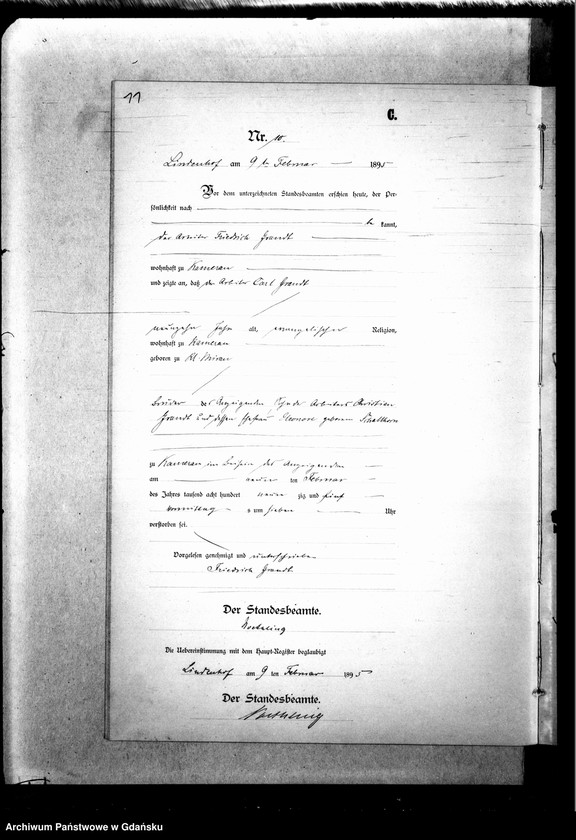 11
C.
Nr. 10.
Lindenhof am 9 ten Februar 1895
Vor dem unterzeichneten Standesbeamten erschien heute, der Per-
sönlichkeit nach
be kannt,
der Arbeiter Friedrich Grandt
wohnhaft zu Kameran
und zeigte an, daß der Arbeiter Carl Grandt
neunzehn Jahr alt, evangelischer Religion,
wohnhaft zu Kameran
geboren zu Kl.
Bruder des Anzeigenden, Sohn des Arbeiters Christian
Grandt und dessen Ehefrau Eleonore geborene
zu Kameran im Beisein des Anzeigenden
am neunten Februar
des Jahres tausend acht hundert neun zig und fünf
Vormittags um sieben Uhr
verstorben sei.
Vorgelesen, genehmigt und unterschrieben
Friedrich Grandt
Der Standesbeamte.
Die Uebereinstimmung mit dem Haupt-Register beglaubigt
Lindenhof am 9 ten Februar 1895
Der Standesbeamte.
Archiwum Państwowe w Gdańsku